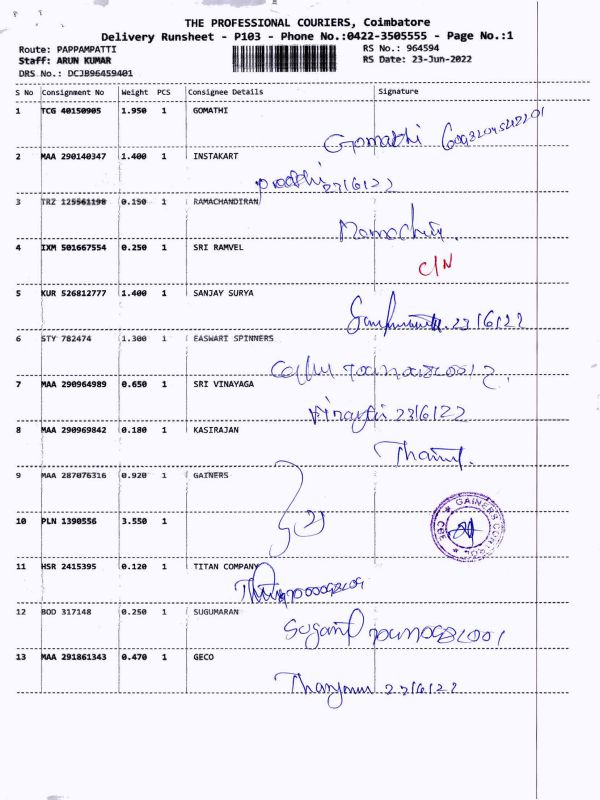 THE PROFESSIONAL COURIERS, Coimbatore
Delivery Runsheet - P103 - Phone No.:0422-3505555 - Page No.:1
Route: PAPPAMPATTI RS No.: 964594
Staff: ARUN KUMAR RS Date: 23-Jun-2022
DRS No.: DCJB96459401
S No Consignment No Weight PCS Consignee Details Signature
1 TCG 40150905 1.950 1 GOMATHI
Gomathi
2 MAA 290140347 1.400 1 INSTAKART
23/6/22
3 TRZ 125561190 0.150 1 RAMACHANDIRAN
4 IXM 501667554 0.250 1 SRI RAMVEL
C/N
5 KUR 526812777 1.400 1 SANJAY SURYA
23/6/22
6 STY 782474 1.300 1 EASWARI SPINNERS
7 MAA 290964989 0.650 1 SRI VINAYAGA
23/6/22
8 MAA 290969842 0.180 1 KASIRAJAN
9 MAA 287076316 0.920 1 GAINERS
GAINERS
CBE
10 PLN 1390556 3.550 1
11 HSR 2415395 0.120 1 TITAN COMPANY
12 BOD 317148 0.250 1 SUGUMARAN
13 MAA 291861343 0.470 1 GECO
23/6/22